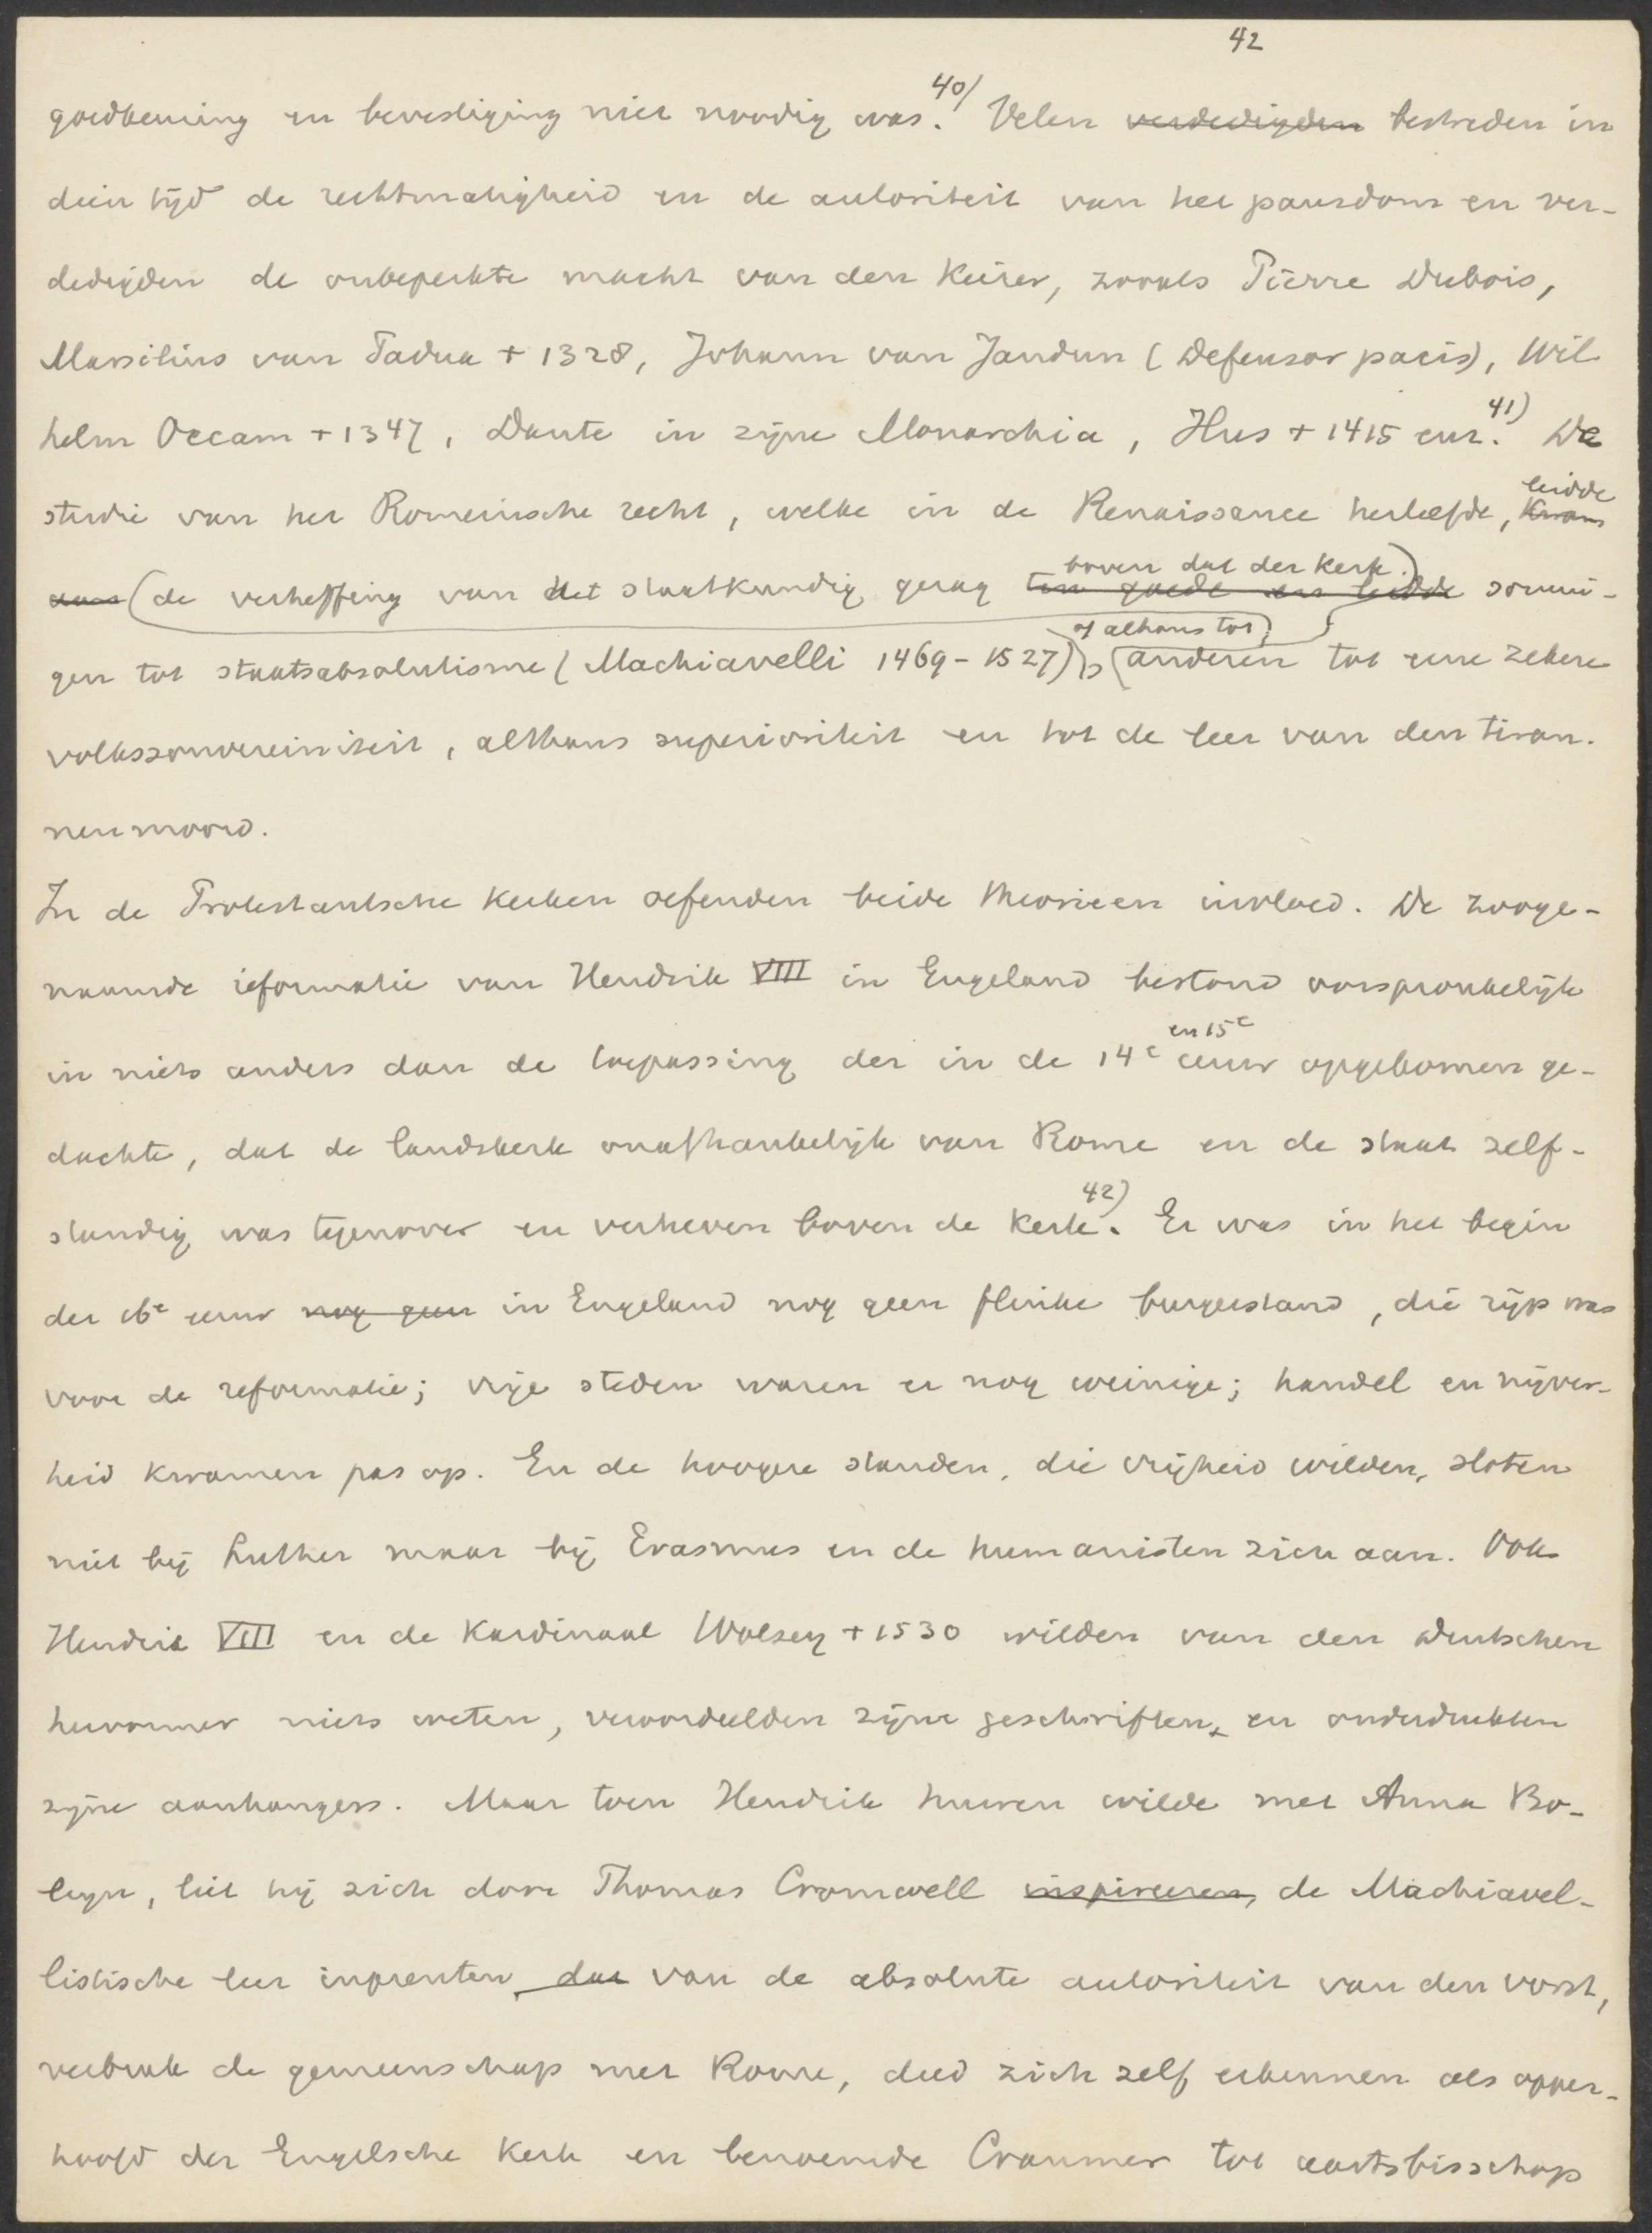 42
goedkeuring en bevestiging niet noodig was.⁴⁰⁾ Velen verdedigden bestreden in
dien tijd de rechtmatigheid en de autoriteit van het pausdom en ver-
dedigden de onbeperkte macht van den Keizer, zooals Pierre Dubois,
Marsilius van Padua + 1328, Johann van Jandun (Defensor pacis), Wil
helm Occam + 1347, Dante in zijne Monarchia, Hus + 1415 enz.⁴¹⁾ De
leidde
studie van het Romeinsche recht, welke in de Renaissance herleefde, Kwam
boven dat der Kerk.)
(de verheffing van het staatkundig gezag ten goede en leidde sommi-
of althans tot
gen tot staatsabsolutisme (Machiavelli 1469-1527), (anderen tot eene zekere
volkssouvereiniteit, althans superioriteit en tot de leer van den tiran-
nenmoord.
In de Protestantsche Kerken oefenden beide theorieen invloed. De zooge-
naamde reformatie van Hendrik VIII in Engeland bestond oorspronkelijk
en 15e
in niets anders dan de toepassing der in de 14e eeuw opgekomen ge-
dachte, dat de landskerk onafhankelijk van Rome en de staat zelf-
standig was tegenover en verheven boven de Kerk.⁴²⁾ Er was in het begin
der 16e eeuw nog geen in Engeland nog geen flinke burgerstand, die rijp was
voor de reformatie; vrije steden waren er nog weinige; handel en nijver-
heid kwamen pas op. En de hoogere standen, die vrijheid wilden, sloten
niet bij Luther maar bij Erasmus en de humanisten zich aan. Ook
Hendrik VIII en de Kardinaal Wolsey + 1530 wilden van den Duitschen
hervormer niets weten, veroordeelden zijne geschriften, en onderdrukten
zijne aanhangers. Maar toen Hendrik huwen wilde met Anna Bo-
leyn, liet hij zich door Thomas Cromwell inspireeren, de Machiavel-
listische leer inprenten, dat van de absolute autoriteit van den vorst,
verbrak de gemeenschap met Rome, deed zich zelf erkennen als opper-
hoofd der Engelsche Kerk en benoemde Cranmer tot aartsbisschop